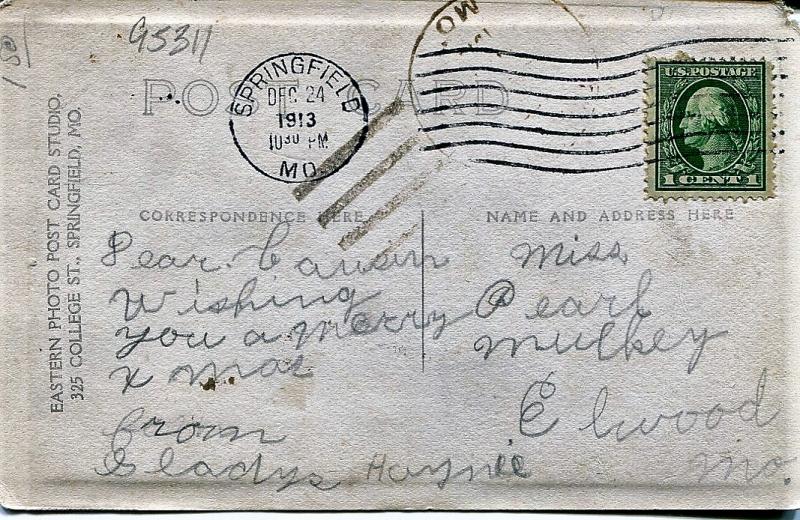 95311
POST CARD
SPRINGFIELD
DEC 24
1913
10 30 PM
MO.
MO
U.S. POSTAGE
1 CENT 1
EASTERN PHOTO POST CARD STUDIO,
325 COLLEGE ST., SPRINGFIELD, MO.
CORRESPONDENCE HERE
Dear Cousin
Wishing
you a merry
X mas
from
Gladys Haynie
NAME AND ADDRESS HERE
Miss
Pearl
Mulkey
Elwood
Mo.